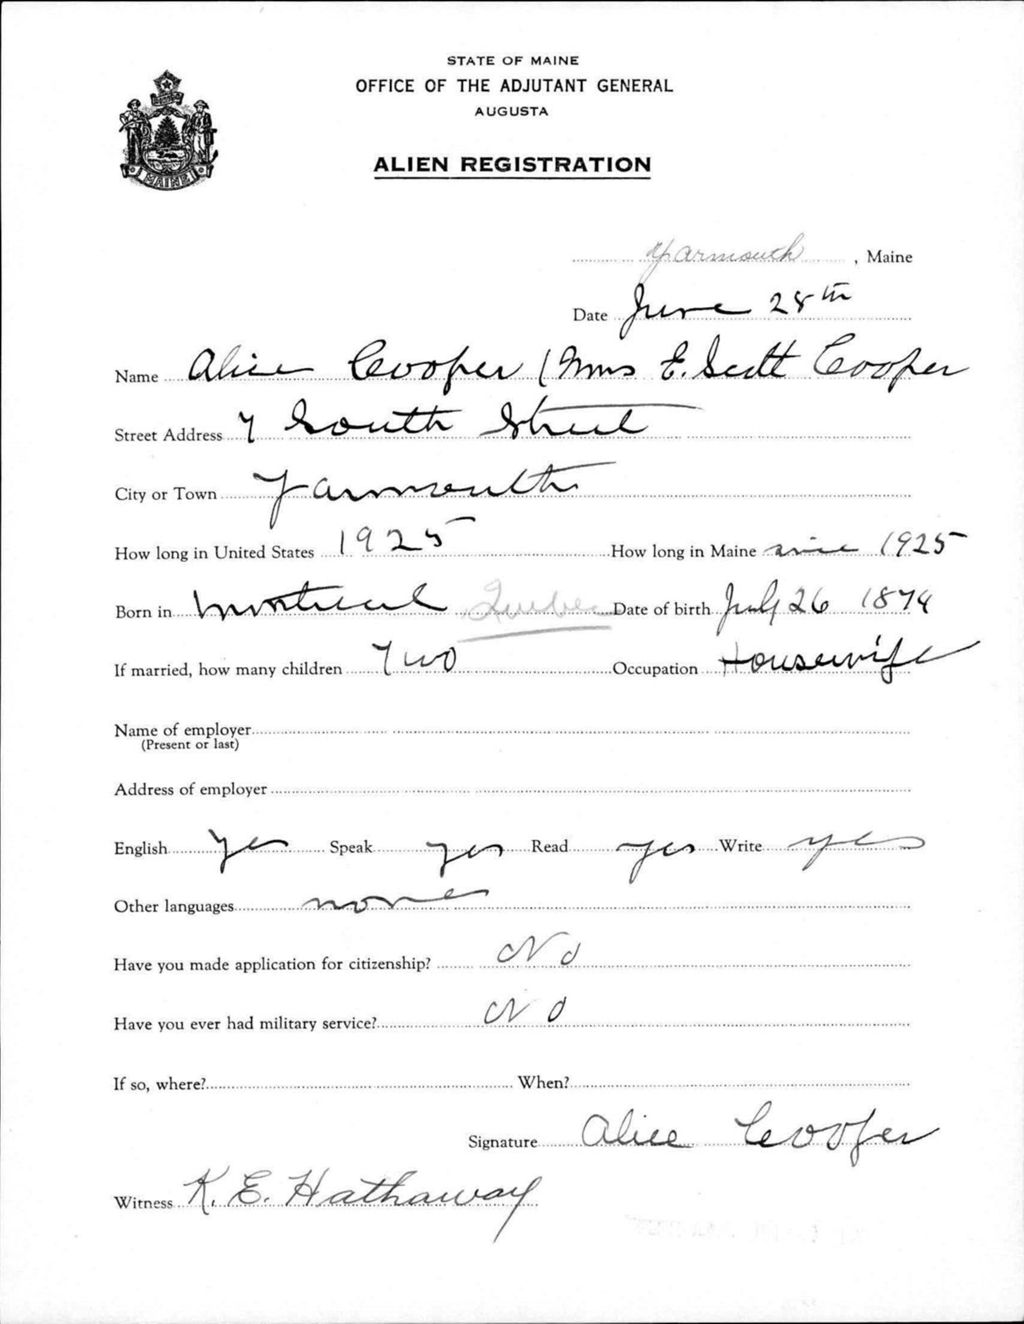 STATE OF MAINE
OFFICE OF THE ADJUTANT GENERAL
AUGUSTA
ALIEN REGISTRATION
MAINE
Yarmouth, Maine
Date June 28th
Name Alice Cooper (Mrs E. Scott Cooper
Street Address 7 South Street
City or Town Yarmouth
How long in United States 1925 How long in Maine since 1925
Born in Montreal Quebec Date of birth July 26 1874
If married, how many children Two Occupation Housewife
Name of employer
(Present or last)
Address of employer
English yes Speak yes Read yes Write yes
Other languages none
Have you made application for citizenship? No
Have you ever had military service? No
If so, where? When?
Signature Alice Cooper
Witness K. E. Hathaway